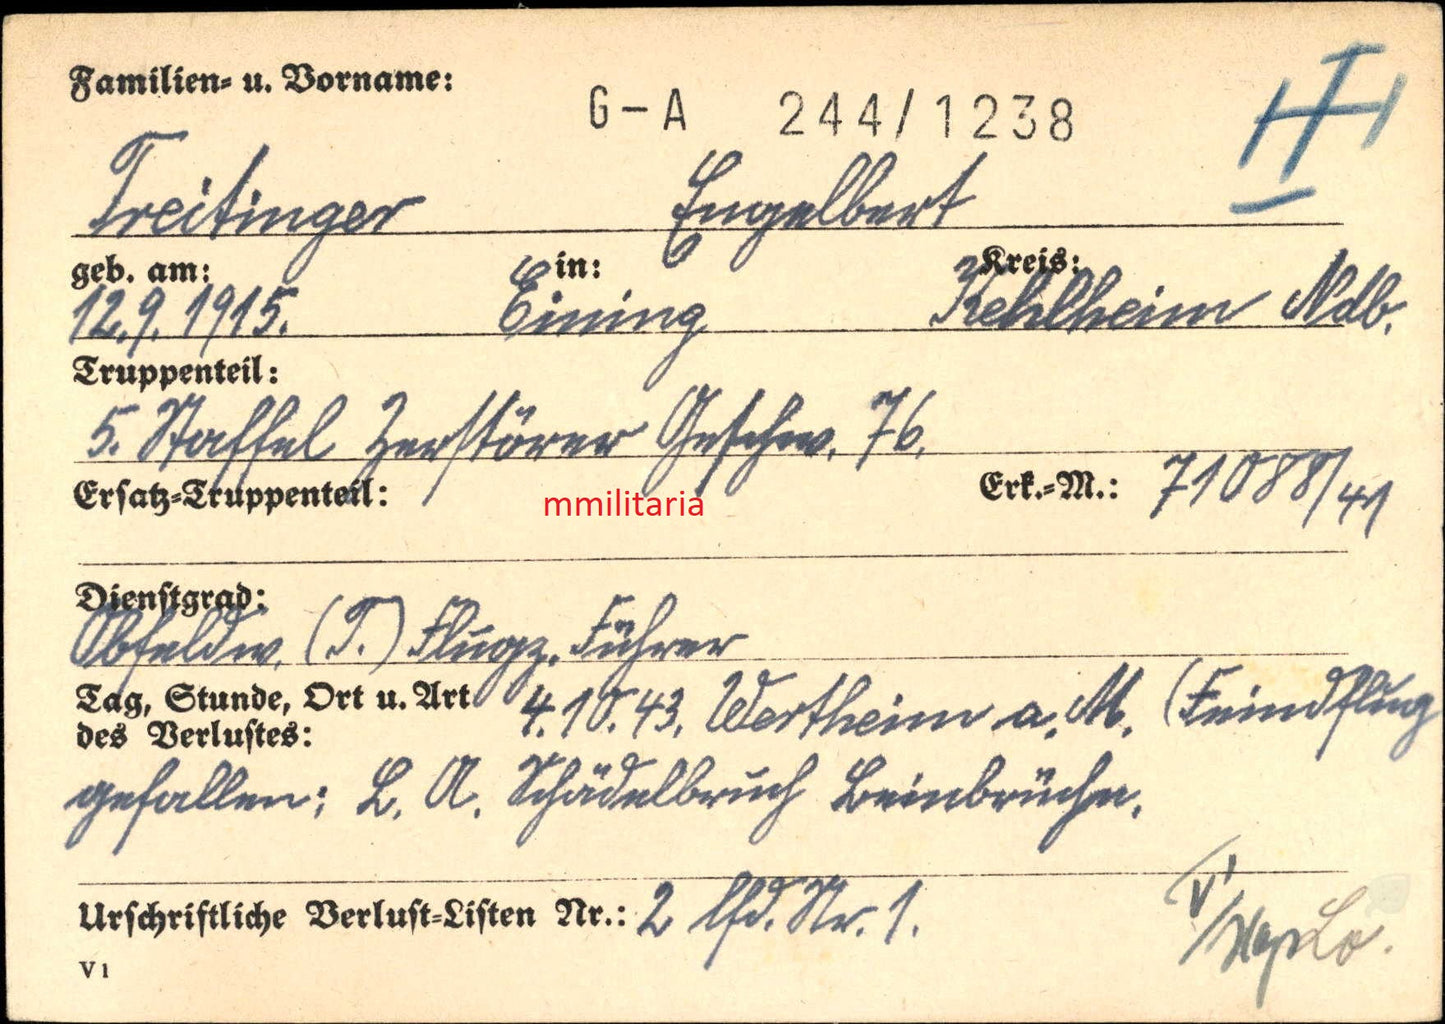 Familien- u. Vorname:
G-A 244/1238
Treitinger Engelbert
geb. am: in: Kreis:
12.9.1915. Eining Kehlheim Ndb.
Truppenteil:
5. Staffel Zerstörer Geschw. 76.
Ersatz-Truppenteil: Erk.-M.: 71088/41
mmilitaria
Dienstgrad:
Obfeldw. (T.) Flugz. Führer
Tag, Stunde, Ort u. Art 4.10.43. Wertheim a. M. (Feindflug
des Verlustes:
gefallen: L. A. Schädelbruch Beinbrüche.
Urschriftliche Verlust-Listen Nr.: 2 lfd. Nr. 1.
V 1